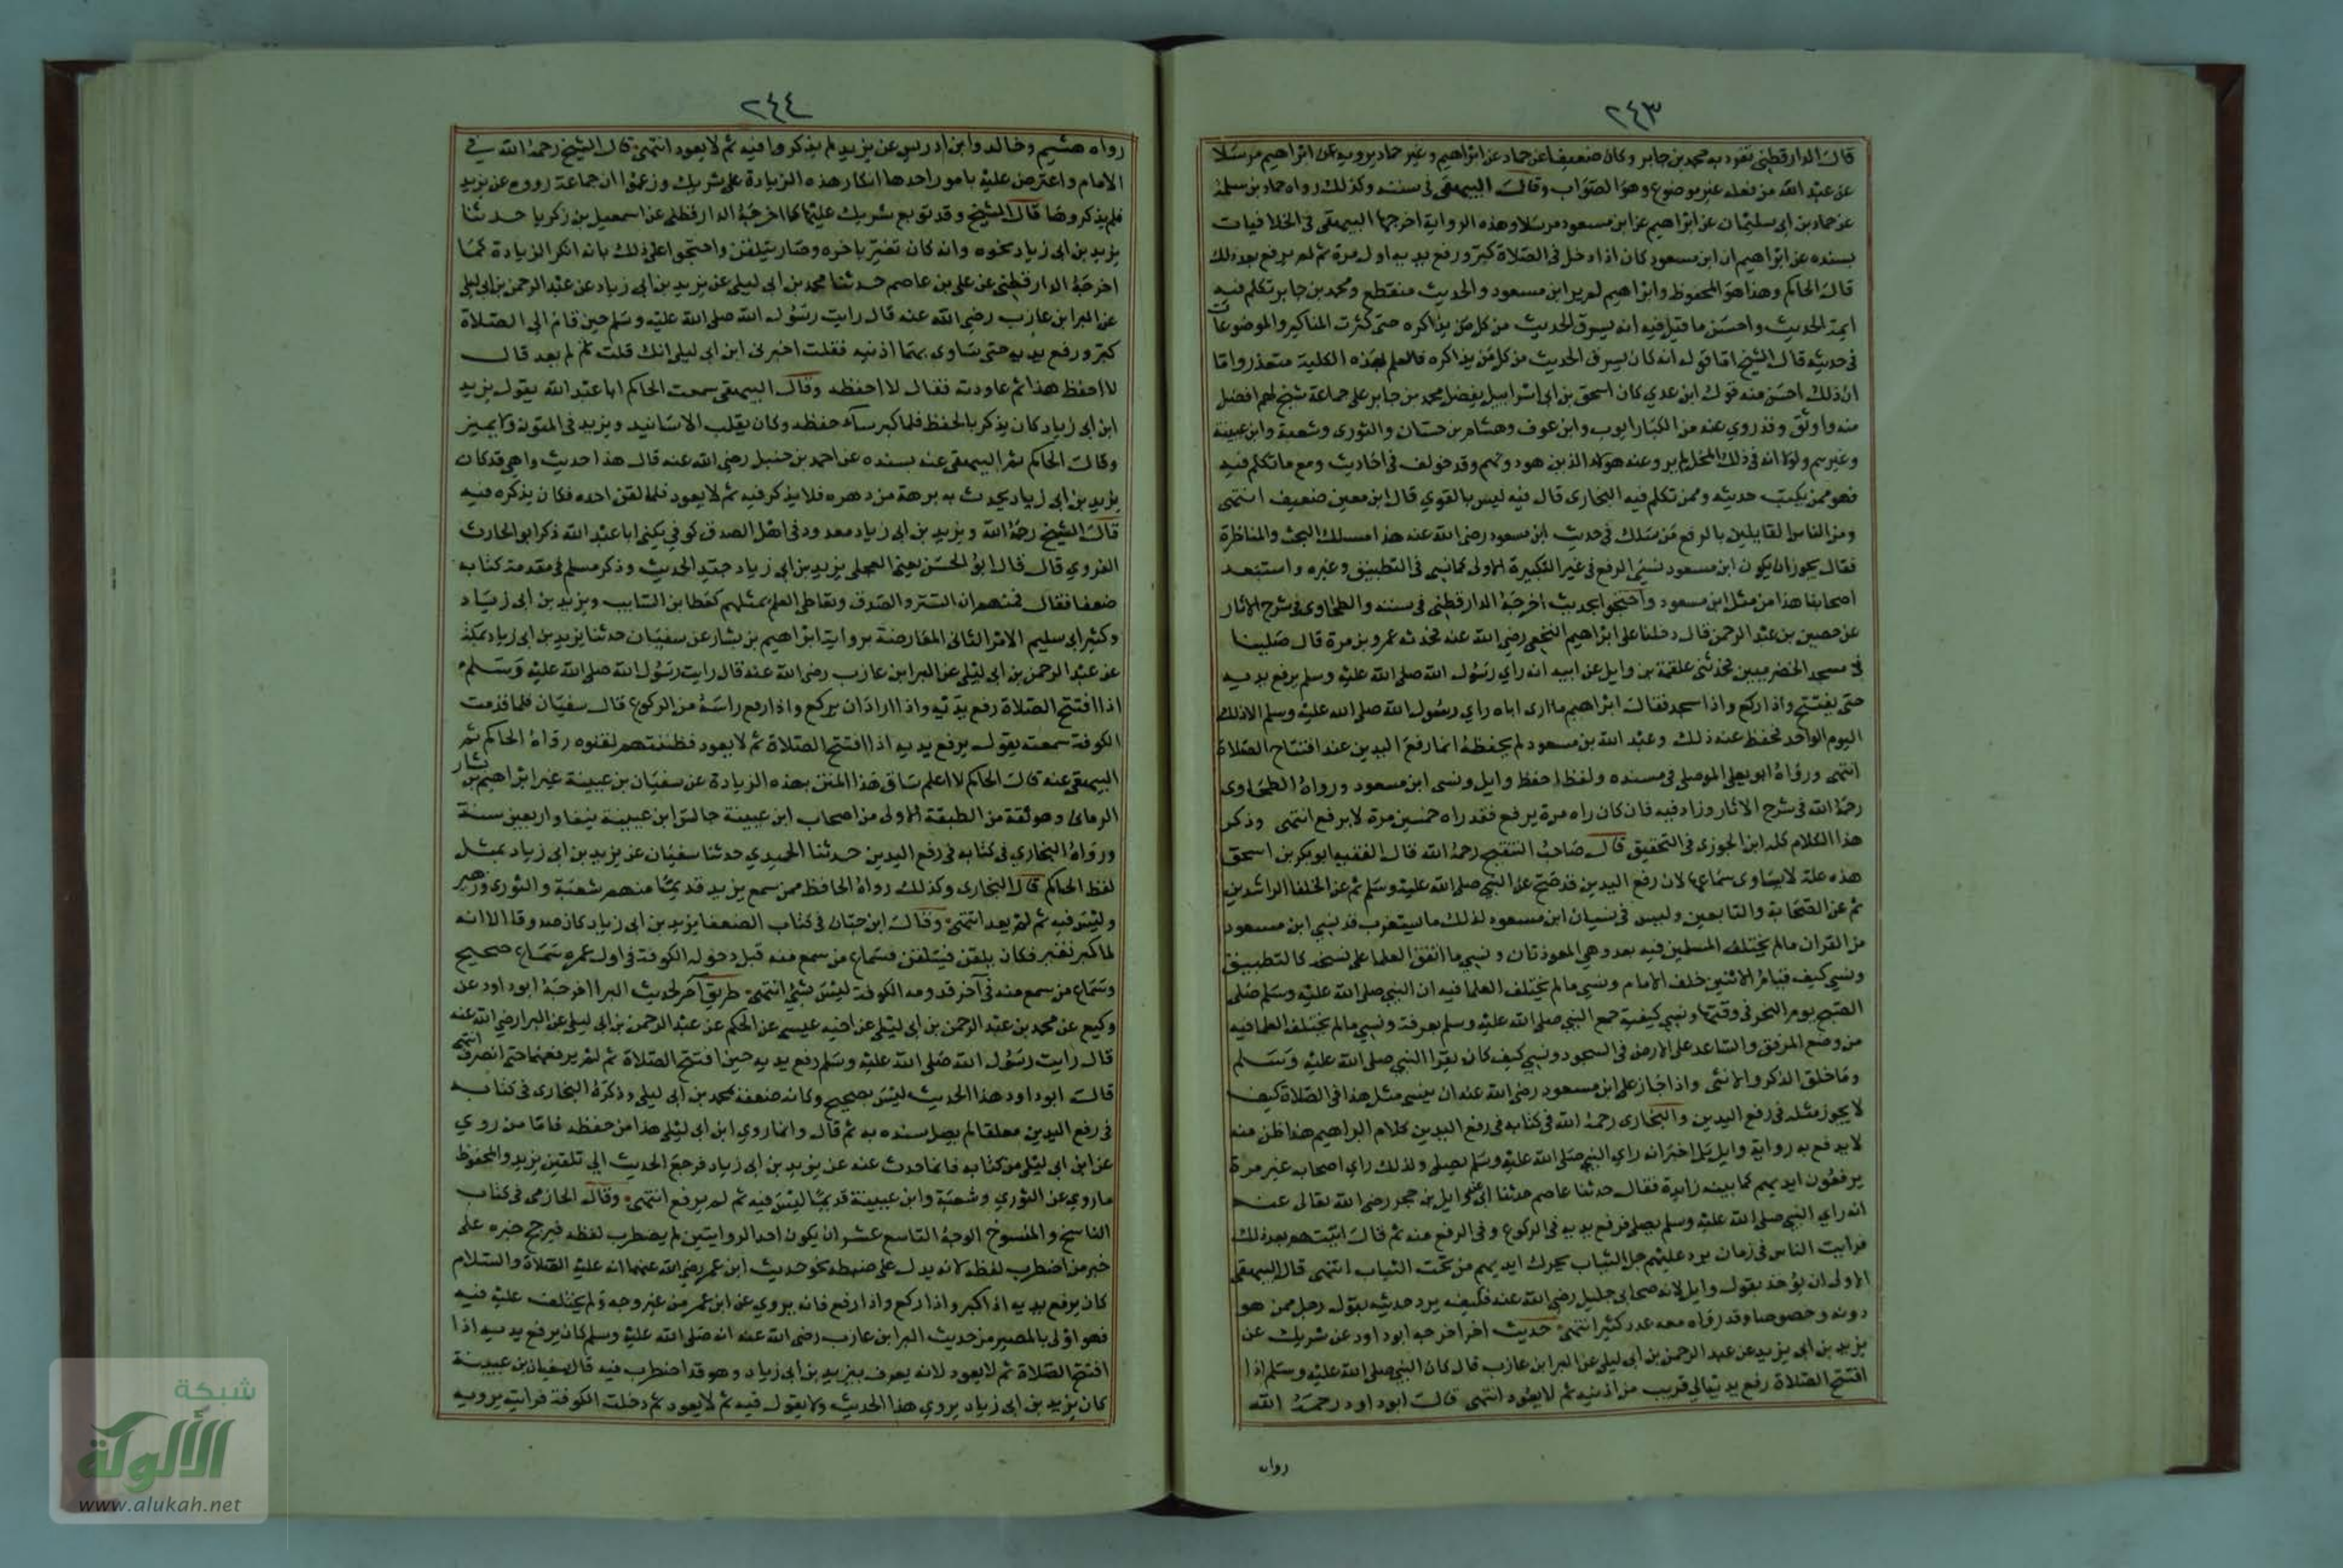 ٢٤٣
قال الدارقطني تفرد به محمد بن جابر وكان ضعيفا عن حماد عن ابراهيم وغير حماد يرويه عن ابراهيم مرسلا
عن عبد الله من فعله غير موضوع وهو الصواب وقال البيهقى فى سننه وكذلك رواه حماد بن سلمة
عن حماد بن ابى سليمان عن ابراهيم عن ابن مسعود مرسلا وهذه الرواية اخرجها البيهقى فى الخلافيات
بسنده عن ابراهيم ان ابن مسعود كان اذا دخل فى الصلاة كبر ورفع يديه اول مرة ثم لم يرفع بعد ذلك
قال الحاكم وهذا هو المحفوظ وابراهيم لم ير ابن مسعود والحديث منقطع ومحمد بن جابر تكلم فيه
ايمة الحديث واحسن ما قيل فيه انه يسرق الحديث من كل من يذاكره حتى كثرت المناكير والموضوعات
فى حديثه قال الشيخ اما قوله انه كان يسرق الحديث من كل من يذاكره فالعلم بهذه الكلية متعذر واما
ان ذلك احسن منه قول ابن عدي كان اسحق بن ابى اسراييل يفضل محمد بن جابر على جماعة شيوخ هم افضل
منه واوثق وقد روي عنه من الكبار ايوب وابن عوف وهشام بن حسان والثورى وشعبة وابن عيينة
وغيرهم ولولا انه فى ذلك المحل لم يرو عنه هولاء الذين هو دونهم وقد خولف فى احاديث ومع ما تكلم فيه
فهو ممن يكتب حديثه وممن تكلم فيه البخارى قال فيه ليس بالقوي قال ابن معين ضعيف انتهى
ومن الناس القايلين بالرفع من سلك فى حديث ابن مسعود رضى الله عنه هذا مسلك البحث والمناظرة
فقال يجوز ان يكون ابن مسعود نسي الرفع فى غير التكبيرة الاولى كما نسي فى التطبيق وغيره واستبعد
اصحابنا هذا من مثل ابن مسعود واحتجوا بحديث اخرجه الدارقطنى فى سننه والطحاوى فى شرح الاثار
عن حصين بن عبد الرحمن قال دخلنا على ابراهيم النخعي رضي الله عنه فحدثه عمرو بن مرة قال صلينا
فى مسجد الحضرميين فحدثنى علقمة بن وايل عن ابيه انه راي رسول الله صلى الله عليه وسلم يرفع يديه
حتى يفتتح واذا ركع واذا سجد فقال ابراهيم ما ارى اباه راي رسول الله صلى الله عليه وسلم الا ذلك
اليوم الواحد فحفظ عنه ذلك وعبد الله بن مسعود لم يحفظه انما رفع اليدين عند افتتاح الصلاة
انتهى ورواه ابو يعلى الموصلى فى مسنده ولفظه احفظ وايل ونسى ابن مسعود ورواه الطحاوى
رحمه الله فى شرح الاثار وزاد فيه فان كان راه مرة يرفع فقد راه خمسين مرة لا يرفع انتهى وذكر
هذا الكلام كله ابن الجوزى فى التحقيق قال صاحب التنقيح رحمه الله قال الفقيه ابو بكر بن اسحق
هذه علة لا يساوى سماعها لان رفع اليدين قد صح عن النبي صلى الله عليه وسلم ثم عن الخلفا الراشدين
ثم عن الصحابة والتابعين وليس فى نسيان ابن مسعود لذلك ما يستغرب قد نسي ابن مسعود
من القران ما لم يختلف المسلمين فيه بعد وهي المعوذتان ونسي ما اتفق العلما على نسخه كالتطبيق
ونسي كيف قيام الاثنين خلف الامام ونسي ما لم يختلف العلما فيه ان النبي صلى الله عليه وسلم صلى
الصبح يوم النحر فى وقتها ونسي كيفية جمع النبي صلى الله عليه وسلم بعرفة ونسي ما لم يختلف العلما فيه
من وضع المرفق والساعد على الارض فى السجود ونسي كيف كان يقرا النبي صلى الله عليه وسلم
وما خلق الذكر والانثى واذا جاز على ابن مسعود رضى الله عنه ان ينسى مثل هذا فى الصلاة كيف
لا يجوز مثله فى رفع اليدين والبخارى رحمه الله فى كتابه فى رفع اليدين كلام ابراهيم هذا ظن منه
لا يدفع به رواية وايل بل اخبر انه راي النبي صلى الله عليه وسلم يصلى وكذلك راي اصحابه غير مرة
يرفعون ايديهم كما بينه زايدة فقال حدثنا عاصم حدثنا ابى عن وايل بن حجر رضى الله تعالى عنه
انه راي النبي صلى الله عليه وسلم يصلى فرفع يديه فى الركوع وفى الرفع منه ثم قال اتيتهم بعد ذلك
فرايت الناس فى زمان برد عليهم جل الثياب تحرك ايديهم من تحت الثياب انتهى قال البيهقى
الاولى ان يؤخذ بقول وايل لانه صحابى جليل رضي الله عنه فكيف يرد حديثه بقول رجل ممن هو
دونه وخصوصا وقد رواه معه عدد كثير انتهى حديث اخر اخرجه ابو داود عن شريك عن
يزيد بن ابى يزيد عن عبد الرحمن بن ابى ليلى عن البرا بن عازب قال كان النبي صلى الله عليه وسلم اذا
افتتح الصلاة رفع يديه الي قريب من اذنيه ثم لا يعود انتهى قال ابو داود رحمه الله
رواه
٢٤٤
رواه هشيم وخالد وابن ادريس عن يزيد لم يذكروا فيه ثم لا يعود انتهى قال الشيخ رحمه الله فى
الامام واعترض عليه بامور احدها انكار هذه الزيادة على شريك وزعموا ان جماعة رووه عن يزيد
فلم يذكروها قال الشيخ وقد توبع شريك عليها كما اخرجه الدارقطنى عن اسمعيل بن زكريا حدثنا
يزيد بن ابى زياد نحوه وانه كان تغير باخره وصار يتلقن واحتجوا على ذلك بانه انكر الزيادة كما
اخرجه الدارقطنى عن على بن عاصم حدثنا محمد بن ابى ليلى عن يزيد بن ابى زياد عن عبد الرحمن بن ابى ليلى
عن البرا بن عازب رضى الله عنه قال رايت رسول الله صلى الله عليه وسلم حين قام الى الصلاة
كبر ورفع يديه حتى ساوى بهما اذنيه فقلت اخبرنى ابن ابى ليلى انك قلت ثم لم يعد قال
لا احفظ هذا ثم عاودته فقال لا احفظه وقال البيهقى سمعت الحاكم ابا عبد الله يقول يزيد
ابن ابى زياد كان يذكر بالحفظ فلما كبر ساء حفظه وكان يقلب الاسانيد ويزيد فى المتون ولا يميز
وقال الحاكم ثم البيهقى عنه بسنده عن احمد بن حنبل رضي الله عنه قال هذا حديث واهي قد كان
يزيد بن ابى زياد يحدث به برهة من دهره فلا يذكر فيه ثم لا يعود فلما لقن اخذه فكان يذكره فيه
قال الشيخ رحمه الله ويزيد بن ابى زياد معدود فى اهل الصدق كوفي يكنى ابا عبد الله ذكر ابو الحارث
القروي قال قال ابو الحسن يعنى العجلى يزيد بن ابى زياد جيد الحديث وذكر مسلم فى مقدمة كتابه
ضعفا فقال فمنهم ان الستر والصدق وتعاطي العلم يمثلهم كعطا بن السايب ويزيد بن ابى زياد
وكثير ابى سليم الامر الثانى المعارضة برواية ابراهيم بن بشار عن سفيان حدثنا يزيد بن ابى زياد بمكة
عن عبد الرحمن بن ابى ليلى عن البرا بن عازب رضى الله عنه قال رايت رسول الله صلى الله عليه وسلم
اذا افتتح الصلاة رفع يديه واذا اراد ان يركع واذا رفع راسه من الركوع قال سفيان فلما قدمت
الكوفة سمعته يقول يرفع يديه اذا افتتح الصلاة ثم لا يعود فظننتهم لقنوه رواه الحاكم ثم
البيهقى عنه قال الحاكم لا اعلم ساق هذا المتن بهذه الزيادة عن سفيان بن عيينة غير ابراهيم بن بشار
الرمادى وهو ثقة من الطبقة الاولى من اصحاب ابن عيينة جالس ابن عيينة نيفا واربعين سنة
ورواه البخاري فى كتابه فى رفع اليدين حدثنا الحميدي حدثنا سفيان عن يزيد بن ابى زياد بمثل
لفظ الحاكم قال البخارى وكذلك رواه الحافظ ممن سمع يزيد قديما منهم شعبة والثورى وزهير
وليس فيه ثم لم يعد انتهى وقال ابن حبان فى كتاب الضعفا يزيد بن ابى زياد كان صدوقا الا انه
لما كبر تغير فكان يلقن فيتلقن فسماع من سمع منه قبل دخوله الكوفة فى اول عمره سماع صحيح
وسماع من سمع منه فى اخر قدومه الكوفة ليس بشئ انتهى طريق اخر لحديث البرا اخرجه ابو داود عن
وكيع عن محمد بن عبد الرحمن بن ابى ليلى عن اخيه عيسى عن الحكم عن عبد الرحمن بن ابى ليلى عن البرا رضي الله عنه
قال رايت رسول الله صلى الله عليه وسلم رفع يديه حين افتتح الصلاة ثم لم يرفعهما حتى انصرف انتهى
قال ابو داود هذا الحديث ليس بصحيح وكانه ضعفه بمحمد بن ابى ليلى وذكره البخارى فى كتابه
فى رفع اليدين معلقا لم يصل سنده به ثم قال وانما روي ابن ابى ليلى هذا من حفظه فاما من روي
عن ابن ابى ليلى من كتابه فانما حدث عنه عن يزيد بن ابى زياد فرجع الحديث الي تلقين يزيد والمحفوظ
ما روي عن الثوري وشعبة وابن عيينة قديما ليس فيه ثم لم يرفع انتهى وقال الحازمى فى كتاب
الناسخ والمنسوخ الوجه التاسع عشر ان يكون احد الروايتين لم يضطرب لفظه فيرجح خبره على
خبر من اضطرب لفظه لانه يدل على ضبطه نحو حديث ابن عمر رضي الله عنهما انه عليه الصلاة والسلام
كان يرفع يديه اذا كبر واذا ركع واذا رفع فانه يروي عن ابن عمر من غير وجه ولم يختلف عليه فيه
فهو اولى بالمصير من حديث البرا بن عازب رضى الله عنه انه صلى الله عليه وسلم كان يرفع يديه اذا
افتتح الصلاة ثم لا يعود لانه يعرف بيزيد بن ابى زياد وهو قد اضطرب فيه قال سفيان بن عيينة
كان يزيد بن ابى زياد يروي هذا الحديث ولا يقول فيه ثم لا يعود ثم دخلت الكوفة فرايته يرويه
شبكة
الألوكة
www.alukah.net